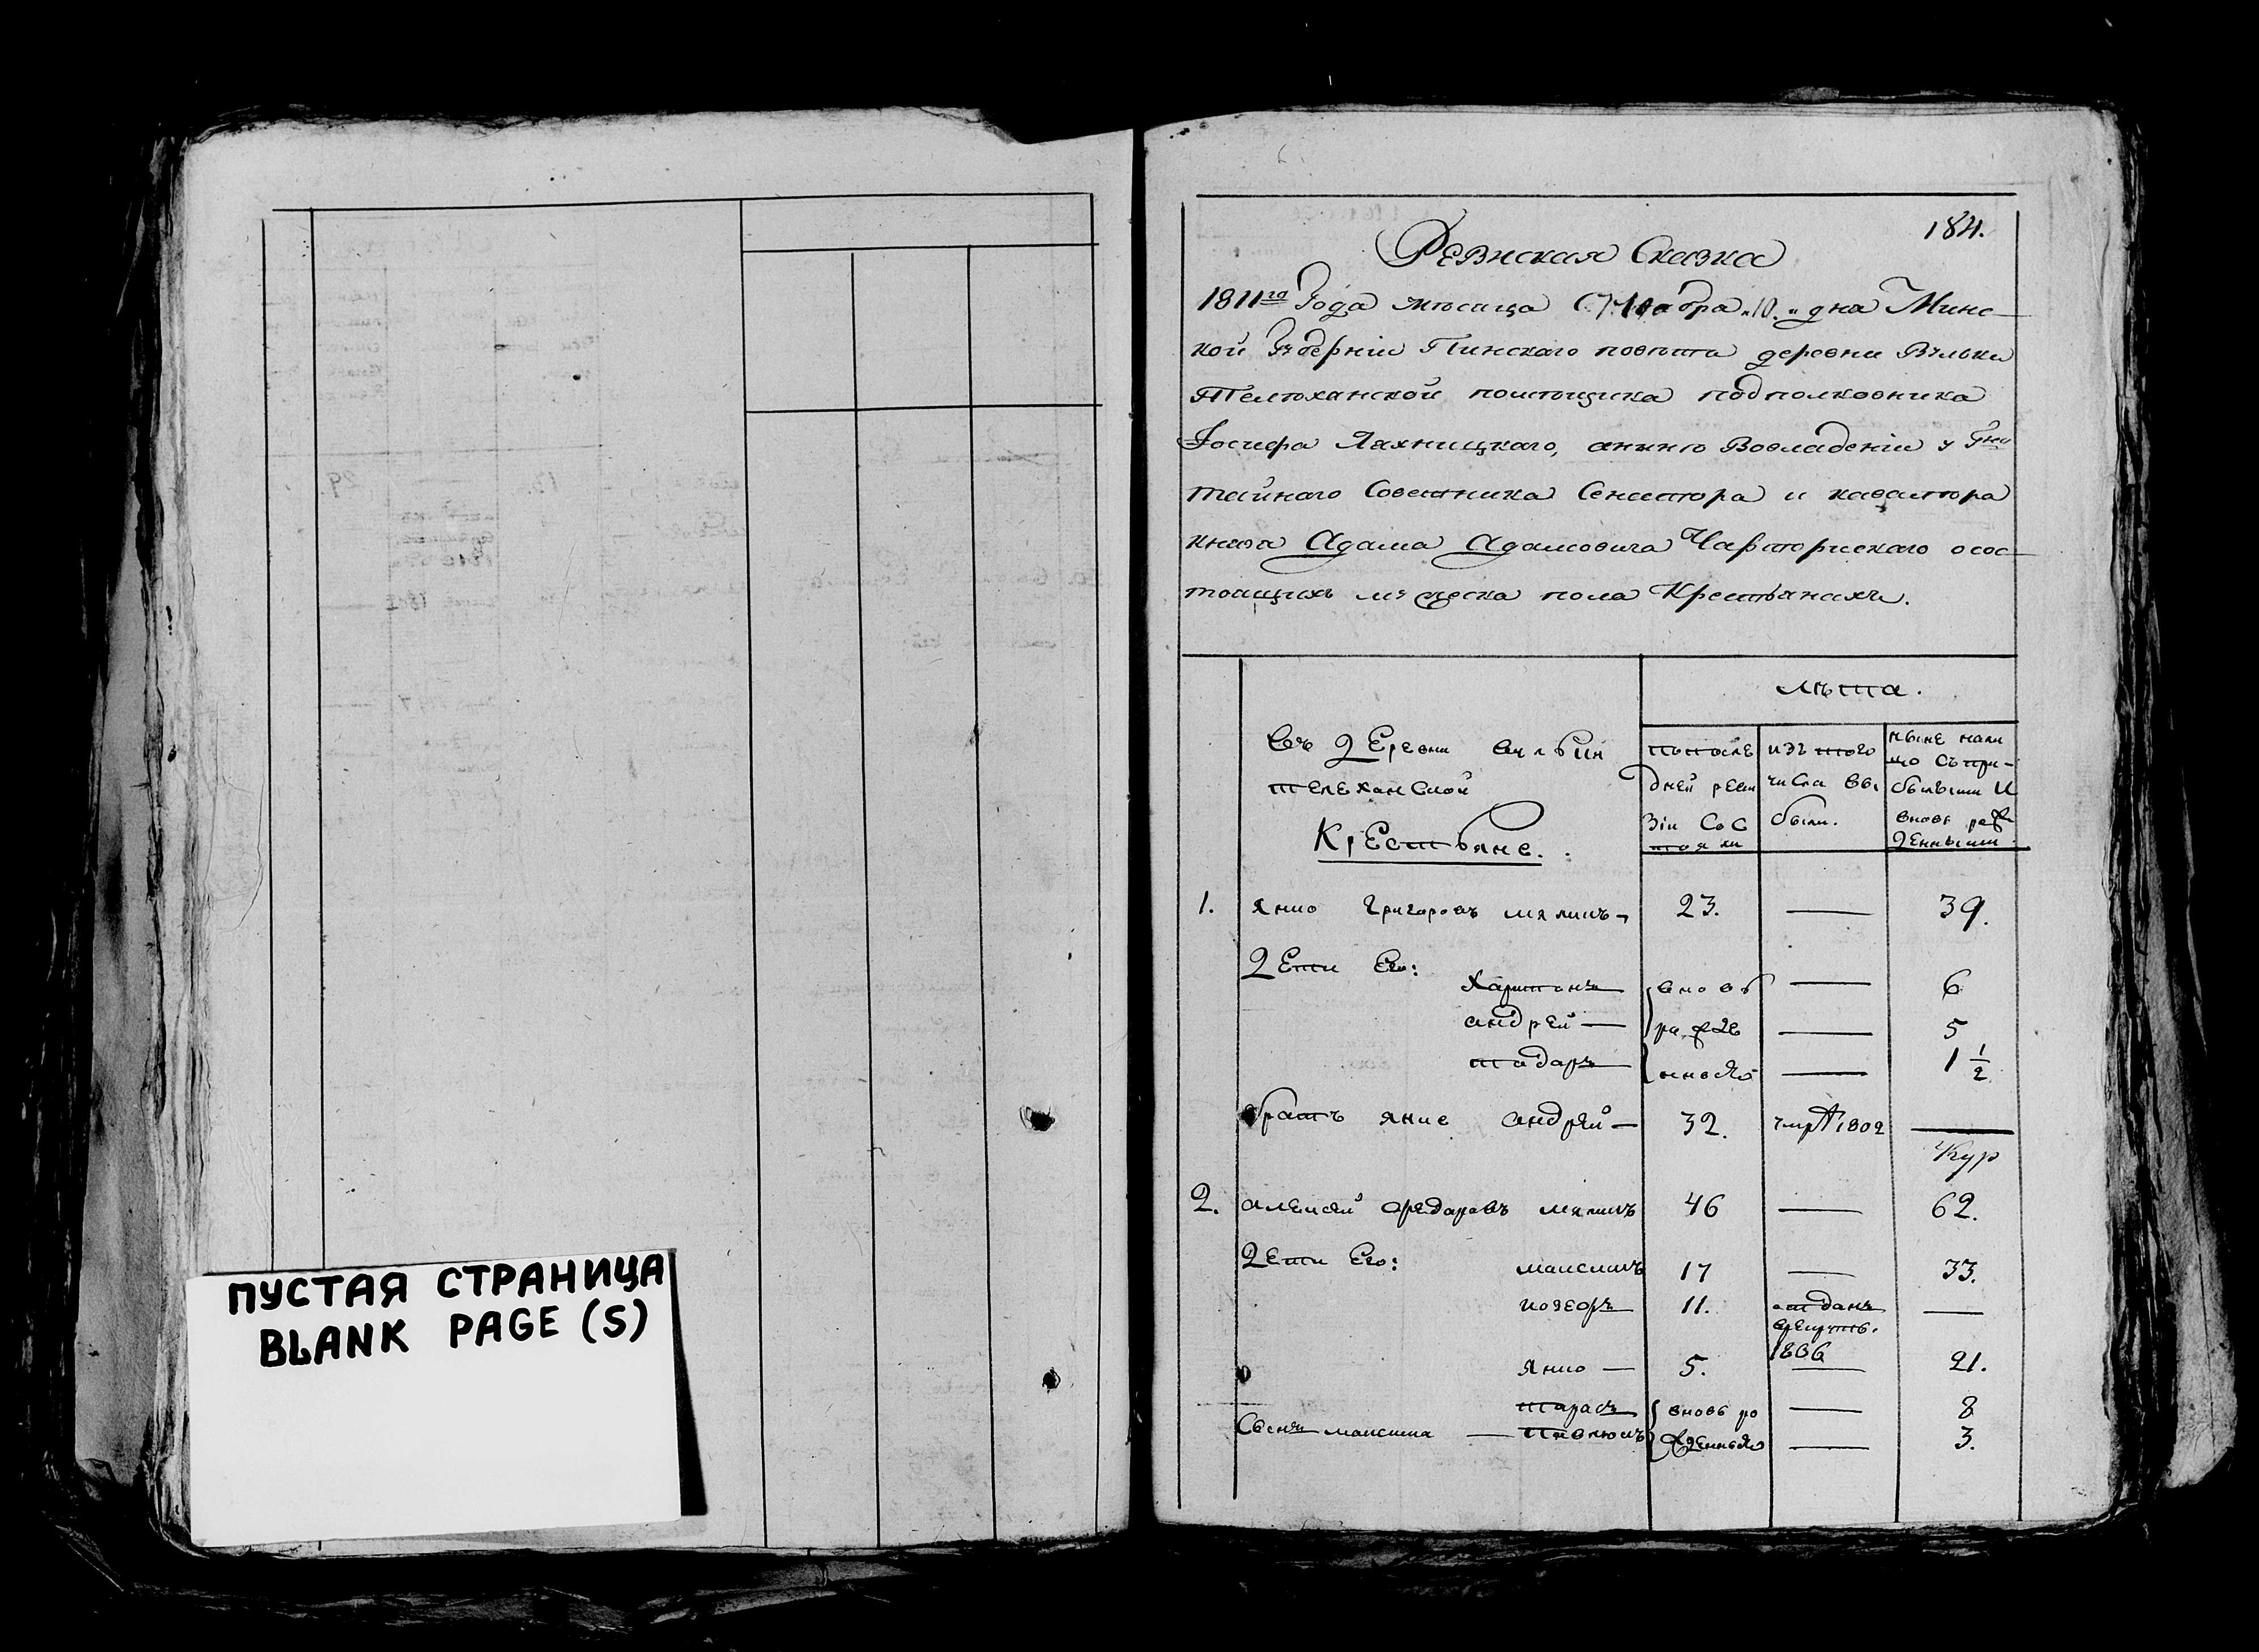 ПУСТАЯ СТРАНИЦА
BLANK PAGE (S)
184.
Ревиская Сказка
1811го Года месяца Ноября „10.„ дня Минс-
кой Губерніи Пинскаго повѣта деревни Вульки
Телѣханской помѣщика подполковника
Іосифа Ляхницкаго, аныне Вовладеніи у Гна
тайнаго Советника Сенатора и кавалѣра
князя Адама Адамовича Чарторискаго осос-
тоящихъ мужеска пола Крестьянахъ.
лѣта.
Въ Деревни вульки
телеханской
Крестьяне.
попосле
дней реви
зіи Сос
тояли
изъ того
числа вы
были.
ныне нали
цо съ при-
былыми И
вновь рож
денными
1. янко Григоровъ 23. — 39.
Дети Его:
Харитонъ — вновь — 6
андрей — рожде — 5
тодаръ — нные — 1 1/2
братъ янке андрей — 32. умръ 1802 —
2. алексей федаровъ 46 — 62.
Дети Его: максимъ 17 — 33.
11. отданъ —
врекруты.
1806
янко — 5. — 21.
тарасъ вновь ро — 8
Сыны максима — жденные — 3.